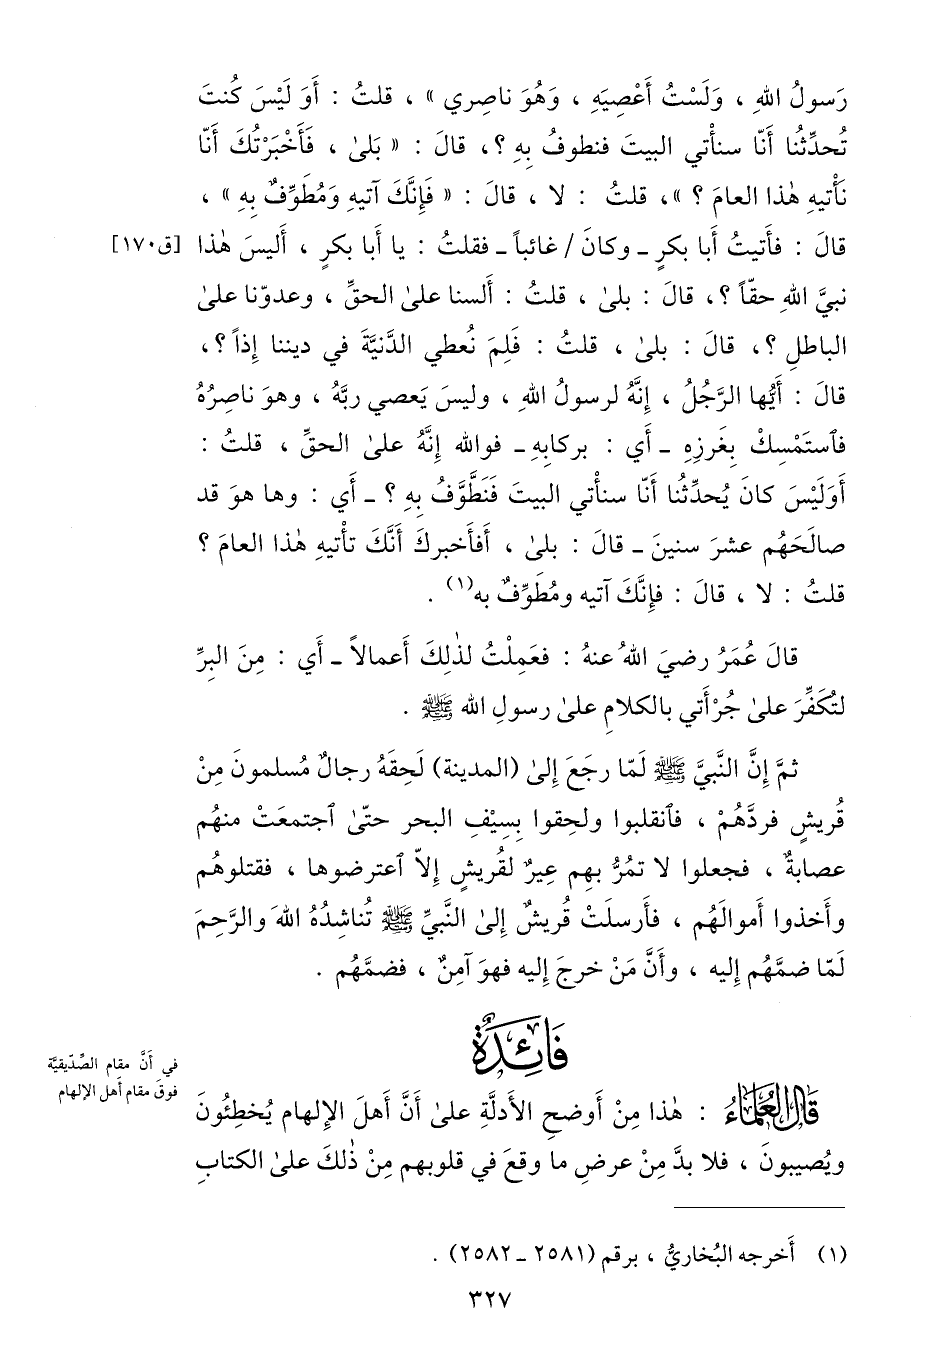 رَسولُ اللهِ ، وَلَسْتُ أَعْصِيَهِ ، وَهُوَ ناصِري » ، قلتُ : أَوَ لَيْسَ كُنتَ
تُحدِّثُنا أَنّا سنأْتي البيتَ فنطوفُ بِهِ ؟، قالَ : « بَلىٰ ، فَأَخْبَرْتُكَ أَنّا
نَأْتيهِ هٰذا العامَ ؟ »، قلتُ : لا ، قالَ : « فَإِنَّكَ آتيهِ وَمُطَوِّفٌ بِهِ » ،
قالَ : فأَتيتُ أَبا بكرٍ ـ وكانَ / غائباً ـ فقلتُ : يا أَبا بكرٍ ، أَليسَ هٰذا [ق١٧٠]
نبيَّ اللهِ حقّاً ؟، قالَ : بلىٰ ، قلتُ : أَلسنا علىٰ الحقِّ ، وعدوّنا علىٰ
الباطلِ ؟، قالَ : بلىٰ ، قلتُ : فَلِمَ نُعطي الدَّنيَّةَ في ديننا إِذاً ؟،
قالَ : أَيُّها الرَّجُلُ ، إِنَّهُ لرسولُ اللهِ ، وليسَ يَعصي ربَّهُ ، وهوَ ناصِرُهُ
فٱستَمْسِكْ بِغَرزِهِ ـ أَي : بركابِهِ ـ فوالله إِنَّهُ علىٰ الحقِّ ، قلتُ :
أَوَلَيْسَ كانَ يُحدِّثُنا أَنّا سنأْتي البيتَ فَنَطَّوَّفُ بِهِ ؟ ـ أَي : وها هوَ قد
صالَحَهُم عشرَ سنينَ ـ قالَ : بلىٰ ، أَفأَخبركَ أَنَّكَ تأْتيهِ هٰذا العامَ ؟
قلتُ : لا ، قالَ : فإِنَّكَ آتيه ومُطَوِّفٌ به(١) .
قالَ عُمَرُ رضيَ اللهُ عنهُ : فعَمِلْتُ لذٰلِكَ أَعمالاً ـ أَي : مِنَ البرِّ
لتُكَفِّرَ علىٰ جُرْأَتي بالكلامِ علىٰ رسولِ الله ﷺ .
ثمَّ إِنَّ النَّبيَّ ﷺ لَمّا رجَعَ إِلىٰ (المدينة) لَحِقَهُ رجالٌ مُسلمونَ مِنْ
قُريشٍ فردَّهُمْ ، فٱنقلبوا ولحِقوا بِسِيْفِ البحر حتّىٰ ٱجتمعَتْ منهُم
عصابةٌ ، فجعلوا لا تمُرُّ بهِم عِيرٌ لقُريشٍ إِلاّ ٱعترضوها ، فقتلوهُم
وأَخذوا أَموالَهُم ، فأَرسلَتْ قُريشٌ إِلىٰ النَّبيِّ ﷺ تُناشِدُهُ اللهَ والرَّحِمَ
لَمّا ضمَّهُم إِليه ، وأَنَّ مَنْ خرجَ إِليه فهوَ آمِنٌ ، فضمَّهُم .
فَائِدَةٌ
في أَنَّ مقام الصِّدّيقيَّة
فوقَ مقام أَهل الإِلهام
قَالَ العُلَمَاءُ : هٰذا مِنْ أَوضحِ الأَدلَّةِ علىٰ أَنَّ أَهلَ الإِلهام يُخطِئُونَ
ويُصيبونَ ، فلا بدَّ مِنْ عرضِ ما وقعَ في قلوبهم مِنْ ذٰلكَ علىٰ الكتابِ
(١) أَخرجه البُخاريُّ ، برقم (٢٥٨١ ـ ٢٥٨٢) .
٣٢٧